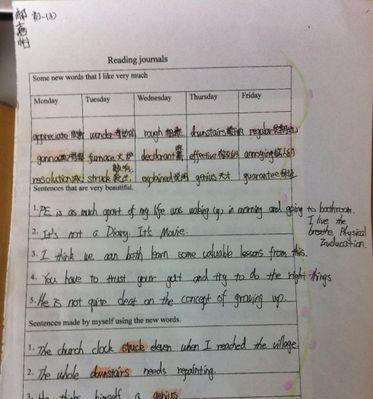 初一(3)
Reading journals
Some new words that I like very much
Monday Tuesday Wednesday Thursday Friday
appreciate wonder rough downstairs regular
gonna furnace deodorant effective annoying
resolution struck explained genius 天才 guarantee
Sentences that are very beautiful.
1. PE is as much apart of my life was waking up in morning and going to bathroom.
I live the breathe Physical
2. It's not a Diary. It's Movie.
3. I think we can both learn some valuable lessons from this.
4. You have to trust your gut and try to do the right things
5. He is not quite clear on the concept of growing up.
Sentences made by myself using the new words.
1. The church clock stuck eleven when I reached the village
2. The whole downstairs needs repainting.
3. He thinks himself a genius